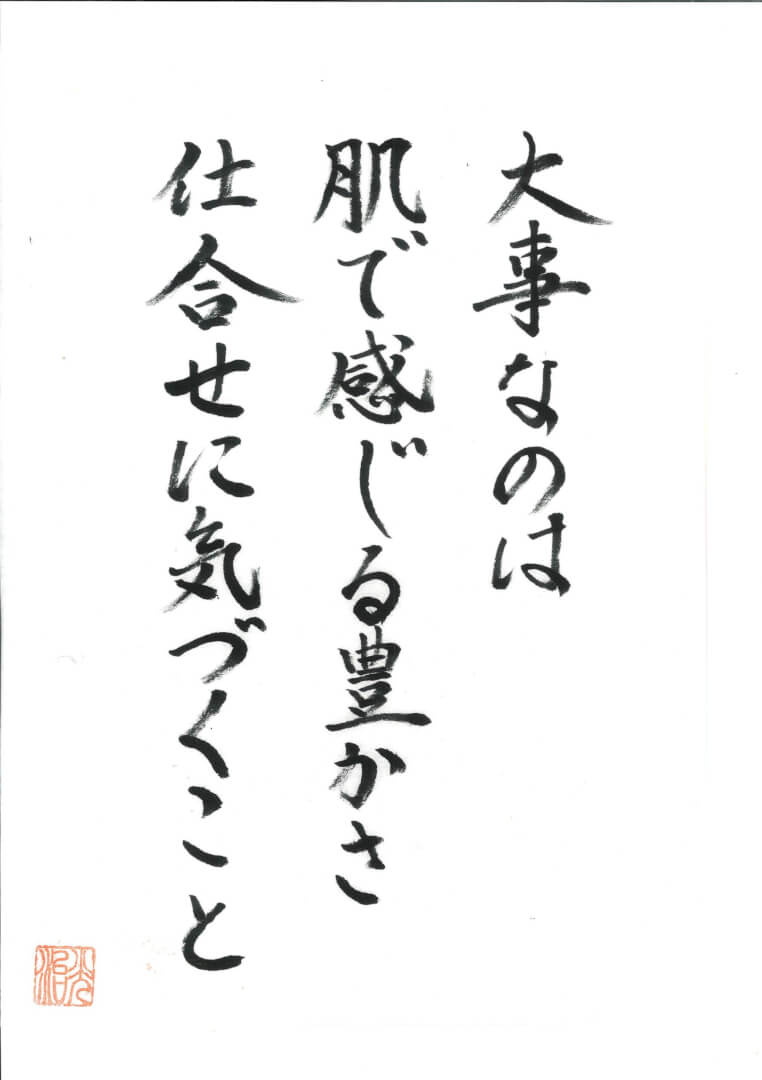 大事なのは
肌で感じる豊かさ
仕合せに気づくこと